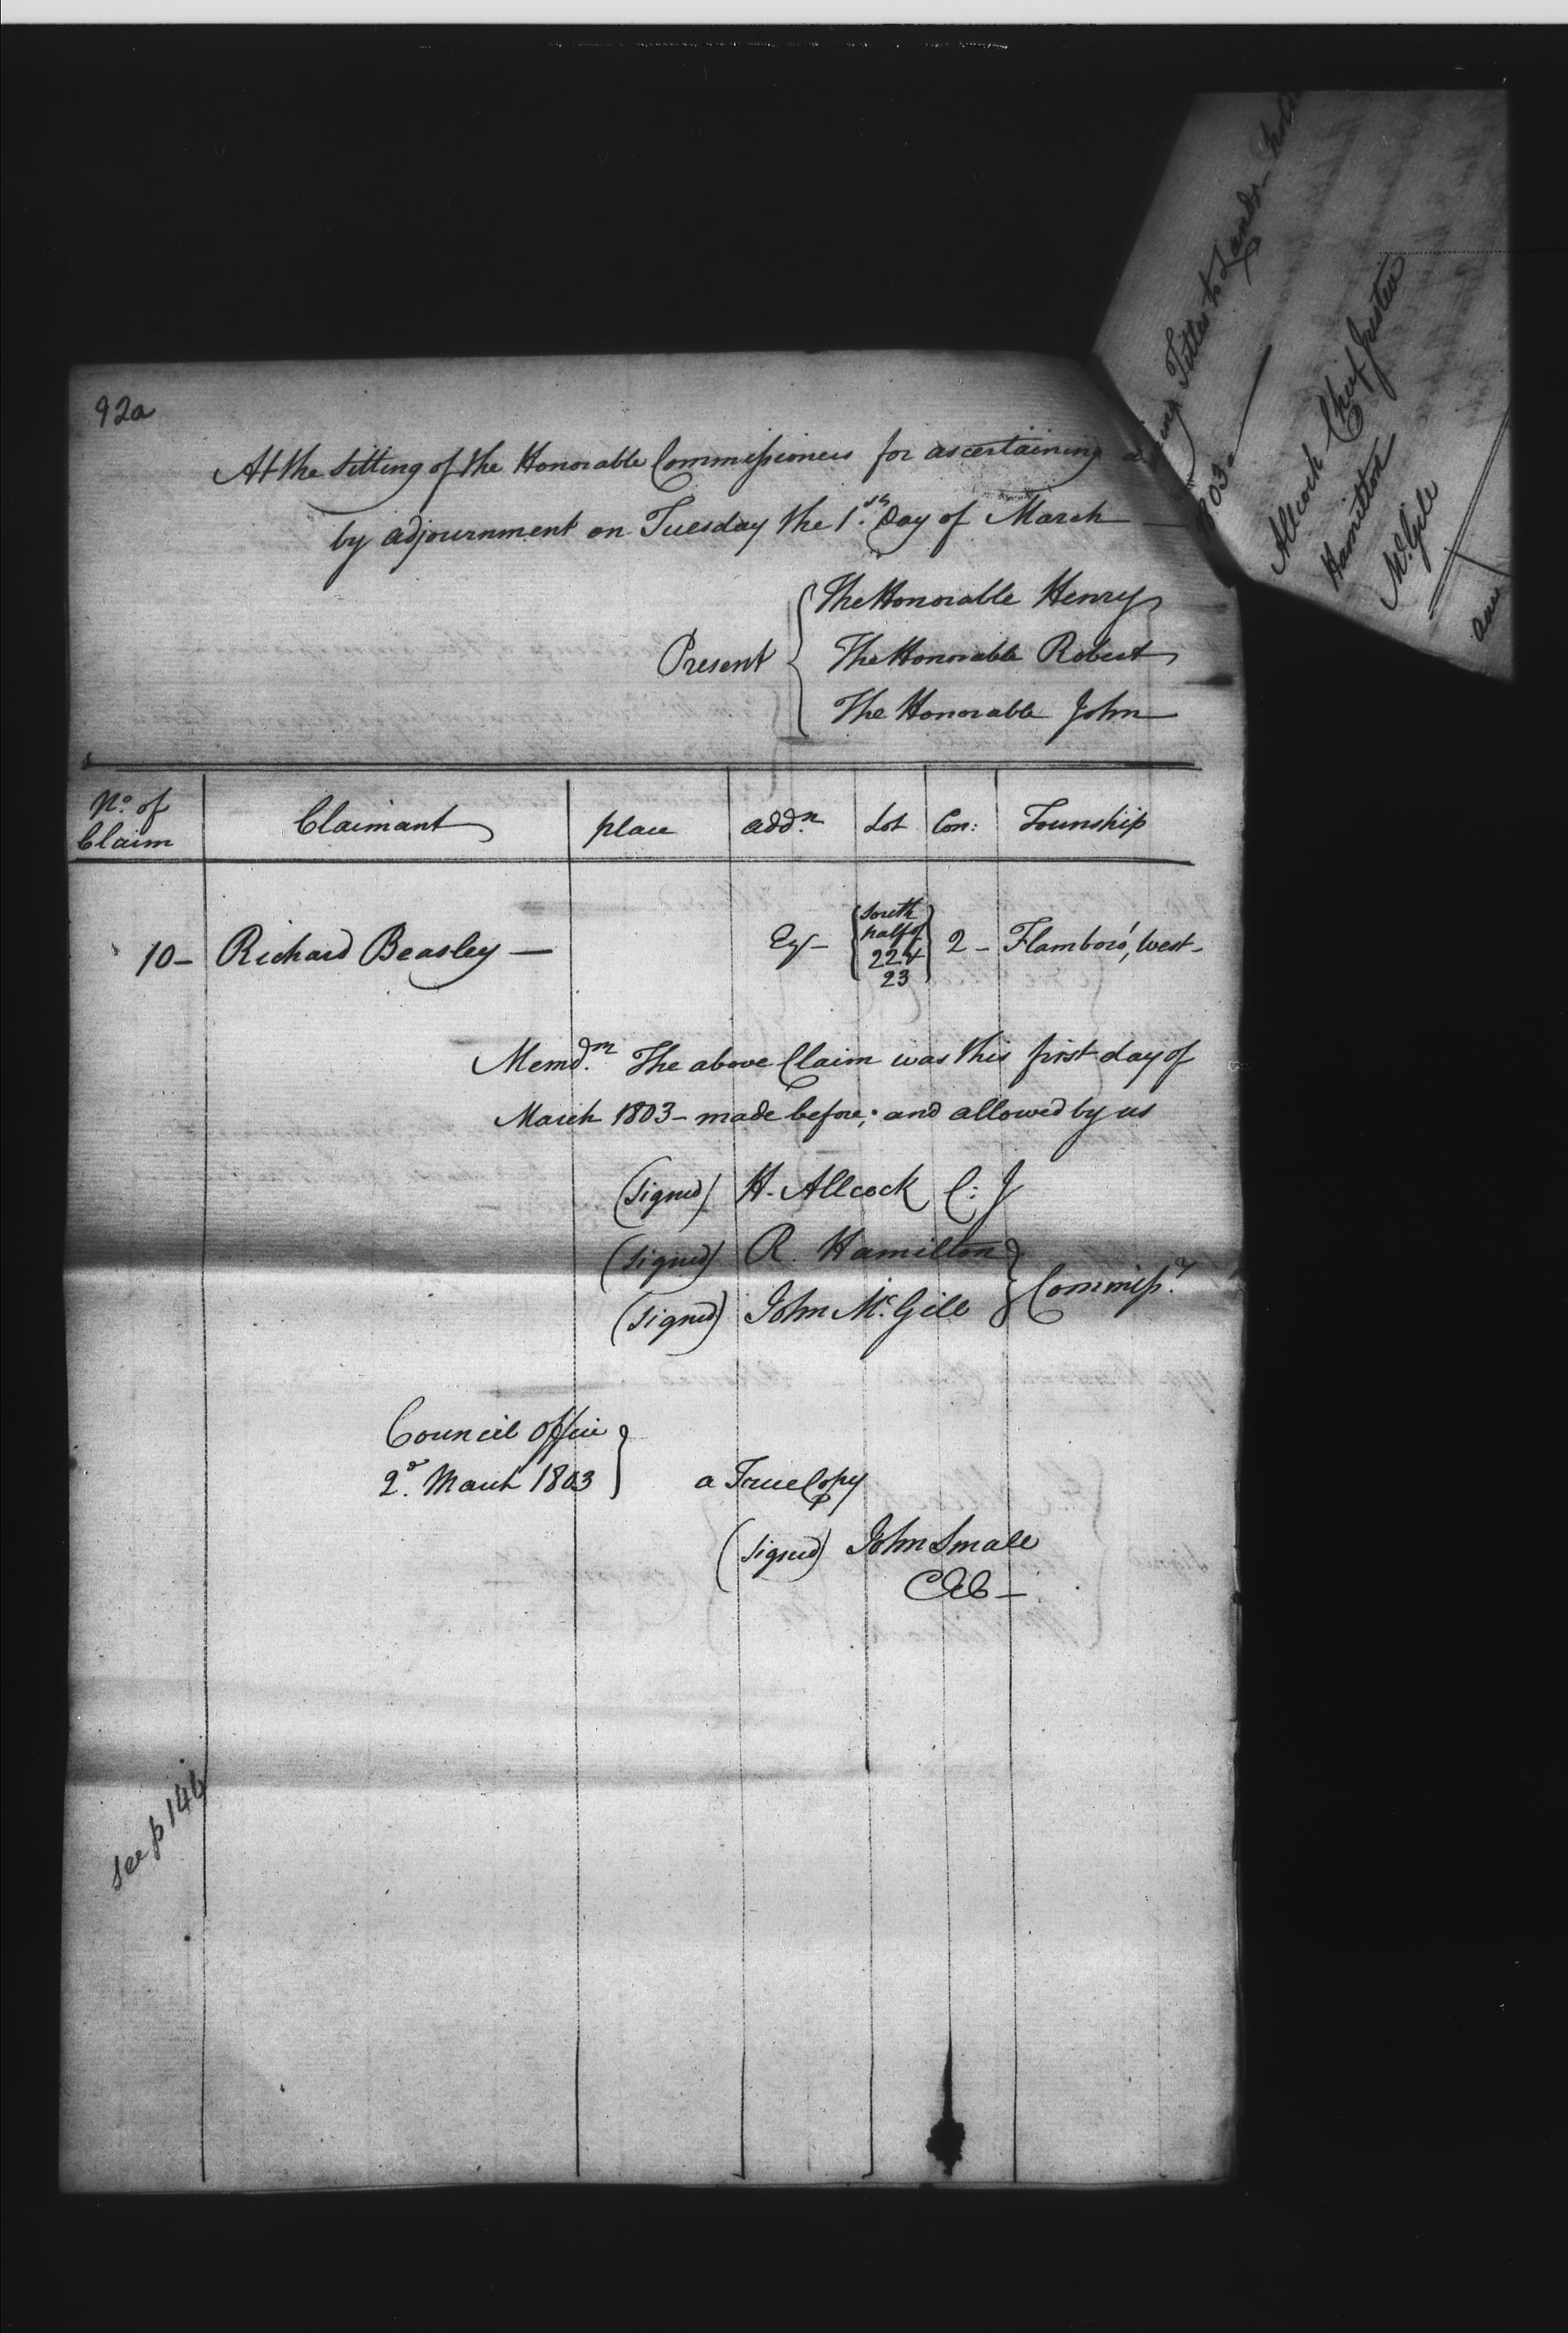 92a
At the Sitting of the Honorable Commissioners for ascertaining
Titles to Lands
by adjournment on Tuesday the 1st. Day of March — 1803.
Present
The Honorable Henry Allcock Chief Justice
The Honorable Robert Hamilton
The Honorable John McGill
No. of Claim | Claimant | place | addn. | Lot | Con: | Township
acre
10 – Richard Beasley — Esqr – South half of 22 & 23 2 – Flamboro', West –
Memdm. The above Claim was this first day of
March 1803 – made before; and allowed by us
(signed) H. Allcock C: J
(signed) R. Hamilton
(signed) John Mc.Gill
Commissr.
Council Office
2d. March 1803
a True Copy
(signed) John Small
CEC –
see p 146